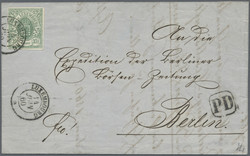 An die
Expedition der Berliner
Börsen-Zeitung
Berlin.
PD
LUXEMBOURG
fco!